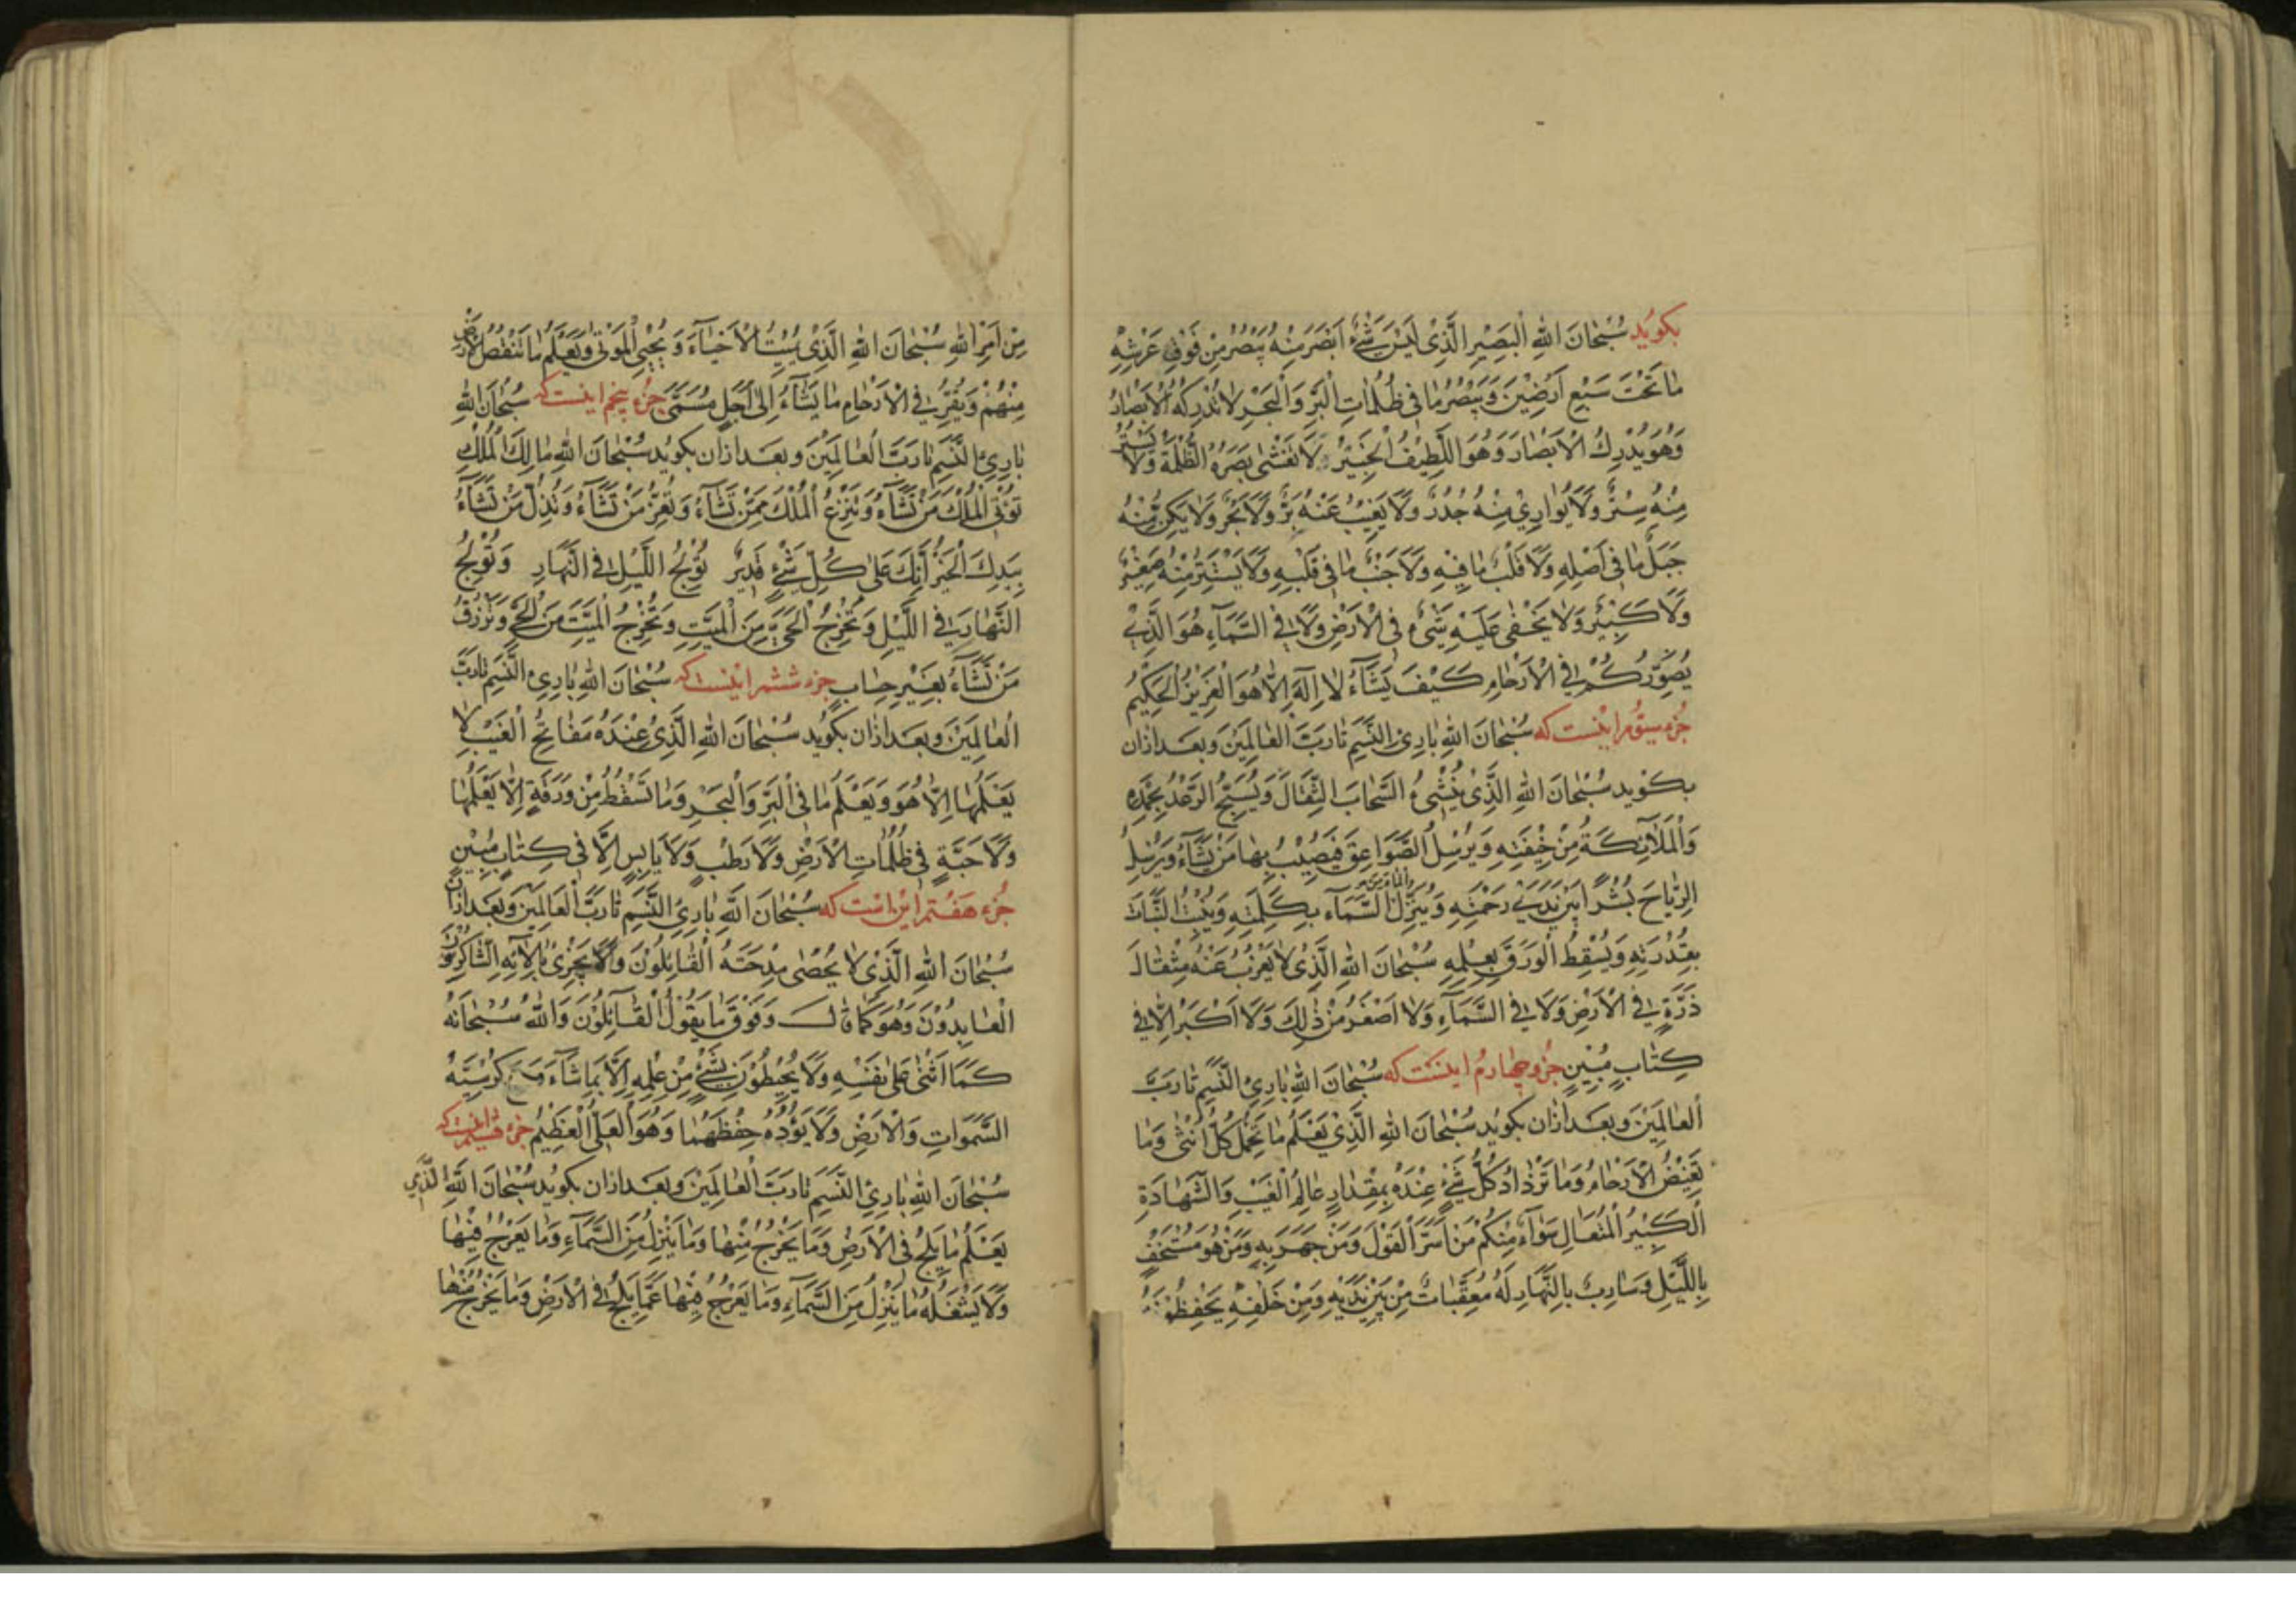 بكوُيد سُبْحانَ اللهِ الْبَصِيرِ الَّذِى لَيْسَ شَىْءٌ اَبْصَرَ مِنْهُ يُبْصِرُ مِنْ فَوْقِ عَرْشِهِ
مٰا تَحْتَ سَبْعِ اَرَضِيْنَ وَيُبْصِرُ مٰا فى ظُلُمٰاتِ الْبَرِّ وَالْبَحْرِ لا تُدْرِكُهُ الْاَبْصٰارُ
وَهُوَ يُدْرِكُ الْاَبْصٰارَ وَهُوَ اللَّطِيْفُ الْخَبِيْرُ لا تَغْشٰى بَصَرَهُ الظُّلْمَةُ وَلا يُسْتَتَرُ
مِنْهُ بِسِتْرٍ وَلا يُوٰارِيْ مِنْهُ جُدُرٌ وَلا يَغِيْبُ عَنْهُ بَرٌّ وَلا بَحْرٌ وَلا يَكِنُّ مِنْهُ
جَبَلٌ مٰا فى اَصْلِهِ وَلا قَلْبٌ مٰا فِيْهِ وَلا جَنْبٌ مٰا فى قَلْبِهِ وَلا يَسْتَتِرُ مِنْهُ صَغِيْرٌ
وَلا كَبِيْرٌ وَلا يَخْفٰى عَلَيْهِ شَىْءٌ فى الْاَرْضِ وَلا فى السَّمٰآءِ هُوَ الَّذِى
يُصَوِّرُكُمْ فى الْاَرْحٰامِ كَيْفَ يَشٰآءُ لا اِلٰهَ اِلّا هُوَ الْعَزِيْزُ الْحَكِيْمُ
جُزء سيّوُم اينست كه سُبْحانَ اللهِ بٰارِئِ النَّسَمِ تا رَبِّ الْعٰالَمِيْنَ و بعد ازان
بكوُيد سُبْحانَ اللهِ الَّذِى يُنْشِئُ السَّحٰابَ الثِّقٰالَ وَيُسَبِّحُ الرَّعْدُ بِحَمْدِهِ
وَالْمَلٰآئِكَةُ مِنْ خِيْفَتِهِ وَيُرْسِلُ الصَّوٰاعِقَ فَيُصِيْبُ بِهٰا مَنْ يَشٰآءُ وَيُرْسِلُ
الرِّيٰاحَ بُشْرًا بَيْنَ يَدَىْ رَحْمَتِهِ وَيُنَزِّلُ الْمٰاءَ مِنَ السَّمٰآءِ بِكَلِمَتِهِ وَيُنْبِتُ النَّبٰاتَ
بِقُدْرَتِهِ وَيُسْقِطُ الْوَرَقَ بِعِلْمِهِ سُبْحانَ اللهِ الَّذِى لا يَعْزُبُ عَنْهُ مِثْقٰالُ
ذَرَّةٍ فى الْاَرْضِ وَلا فى السَّمٰآءِ وَلا اَصْغَرُ مِنْ ذٰلِكَ وَلا اَكْبَرُ اِلّا فى
كِتٰابٍ مُبِيْنٍ جُزو چهارم اينست كه سُبْحانَ اللهِ بٰارِئِ النَّسَمِ تا رَبِّ
الْعٰالَمِيْنَ و بعد ازان بكوُيد سُبْحانَ اللهِ الَّذِى يَعْلَمُ مٰا تَحْمِلُ كُلُّ اُنْثٰى وَمٰا
تَغِيْضُ الْاَرْحٰامُ وَمٰا تَزْدٰادُ كُلُّ شَىْءٍ عِنْدَهُ بِمِقْدٰارٍ عٰالِمُ الْغَيْبِ وَالشَّهٰادَةِ
الْكَبِيْرُ الْمُتَعٰالِ سَوٰآءٌ مِنْكُمْ مَنْ اَسَرَّ الْقَوْلَ وَمَنْ جَهَرَ بِهِ وَمَنْ هُوَ مُسْتَخْفٍ
بِاللَّيْلِ وَسٰارِبٌ بِالنَّهٰارِ لَهُ مُعَقِّبٰاتٌ مِنْ بَيْنِ يَدَيْهِ وَمِنْ خَلْفِهِ يَحْفَظُوْنَهُ
مِنْ اَمْرِ اللهِ سُبْحانَ اللهِ الَّذِى يُمِيْتُ الْاَحْيٰآءَ وَيُحْيِى الْمَوْتٰى وَيَعْلَمُ مٰا تَنْقُصُ الْاَرْضُ
مِنْهُمْ وَيُقِرُّ فى الْاَرْحٰامِ مٰا يَشٰآءُ اِلٰى اَجَلٍ مُسَمًّى جُزء پنجم اينست كه سُبْحانَ اللهِ
بٰارِئِ النَّسَمِ تا رَبِّ الْعٰالَمِيْنَ و بعد ازان بكوُيد سُبْحانَ اللهِ مٰالِكِ الْمُلْكِ
تُؤْتِى الْمُلْكَ مَنْ تَشٰآءُ وَتَنْزِعُ الْمُلْكَ مِمَّنْ تَشٰآءُ وَتُعِزُّ مَنْ تَشٰآءُ وَتُذِلُّ مَنْ تَشٰآءُ
بِيَدِكَ الْخَيْرُ اِنَّكَ عَلٰى كُلِّ شَىْءٍ قَدِيْرٌ تُوْلِجُ اللَّيْلَ فى النَّهٰارِ وَتُوْلِجُ
النَّهٰارَ فى اللَّيْلِ وَتُخْرِجُ الْحَىَّ مِنَ الْمَيِّتِ وَتُخْرِجُ الْمَيِّتَ مِنَ الْحَىِّ وَتَرْزُقُ
مَنْ تَشٰآءُ بِغَيْرِ حِسٰابٍ جزء ششم اينست كه سُبْحانَ اللهِ بٰارِئِ النَّسَمِ تا رَبِّ
الْعٰالَمِيْنَ و بعد ازان بكوُيد سُبْحانَ اللهِ الَّذِى عِنْدَهُ مَفٰاتِحُ الْغَيْبِ لا
يَعْلَمُهٰا اِلّا هُوَ وَيَعْلَمُ مٰا فى الْبَرِّ وَالْبَحْرِ وَمٰا تَسْقُطُ مِنْ وَرَقَةٍ اِلّا يَعْلَمُهٰا
وَلا حَبَّةٍ فى ظُلُمٰاتِ الْاَرْضِ وَلا رَطْبٍ وَلا يٰابِسٍ اِلّا فى كِتٰابٍ مُبِيْنٍ
جُزء هفتم اين است كه سُبْحانَ اللهِ بٰارِئِ النَّسَمِ تا رَبِّ الْعٰالَمِيْنَ و بعد ازان
سُبْحانَ اللهِ الَّذِى لا يُحْصٰى مِدْحَتَهُ الْقٰائِلُوْنَ وَلا يَجْزِى بِآلائِهِ الشّٰاكِرُوْنَ
الْعٰابِدُوْنَ وَهُوَ كَمٰا قٰالَ وَفَوْقَ مٰا يَقُوْلُ الْقٰآئِلُوْنَ وَاللهُ سُبْحانَهُ
كَمٰا اَثْنٰى عَلٰى نَفْسِهِ وَلا يُحِيْطُوْنَ بِشَىْءٍ مِنْ عِلْمِهِ اِلّا بِمٰا شٰآءَ وَسِعَ كُرْسِيُّهُ
السَّمٰوَاتِ وَالْاَرْضَ وَلا يَؤُدُهُ حِفْظُهُمٰا وَهُوَ الْعَلِىُّ الْعَظِيْمُ جزء هشتم اينست كه
سُبْحانَ اللهِ بٰارِئِ النَّسَمِ تا رَبِّ الْعٰالَمِيْنَ و بعد ازان بكوُيد سُبْحانَ اللهِ الَّذِى
يَعْلَمُ مٰا يَلِجُ فى الْاَرْضِ وَمٰا يَخْرُجُ مِنْهٰا وَمٰا يَنْزِلُ مِنَ السَّمٰآءِ وَمٰا يَعْرُجُ فِيْهٰا
وَلا يَشْغَلُهُ مٰا يَنْزِلُ مِنَ السَّمٰآءِ وَمٰا يَعْرُجُ فِيْهٰا عَمّٰا يَلِجُ فى الْاَرْضِ وَمٰا يَخْرُجُ مِنْهٰا